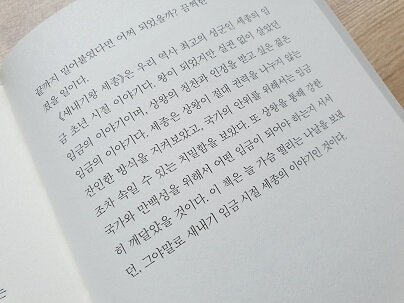 끝까지 밀어붙였다면 어찌 되었을까? 끔찍한
었을 일이다.
《새내기왕 세종》은 우리 역사 최고의 성군인 세종의 임
금 초년 시절 이야기다. 왕이 되었지만 실권 없이 살았던
임금의 이야기이며, 상왕의 칭찬과 인정을 받고 싶은 젊은
임금의 이야기다. 세종은 상왕이 절대 권력을 나누지 않는
잔인한 방식을 지켜보았고, 국가의 안위를 위해서는 임금
조차 속일 수 있는 치밀함을 보았다. 또 상왕을 통해 강한
국가와 만백성을 위해서 어떤 임금이 되어야 하는지 서서
히 깨달았을 것이다. 이 책은 늘 가슴 떨리는 나날을 보냈
던, 그야말로 새내기 임금 시절 세종의 이야기인 것이다.
는